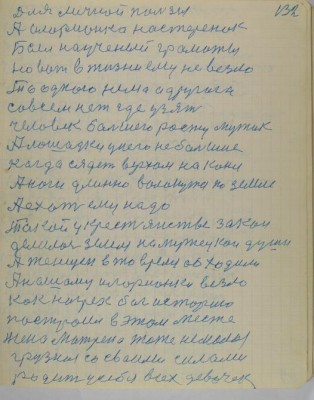 для личной ползы
132
А иларионко настеренок
Был научений грамоты
но вот в жизни ему не везло
То одного нема а другога
совсем нет где узят
человек балшого росту мужик
А лошадки у него не балшие
когда сядет верхом на кони
А ноги длинно волокутца по земле
А ахот ему надо
Такой у крестянстве закон
делилас земля на мужецкои души
А женщен в то время обходили
А нашому илларионко везло
как на грех баг историю
построил в этом месте
жена Матрена тоже немалоя
грузная со своими силами
родит у себя всех девочек